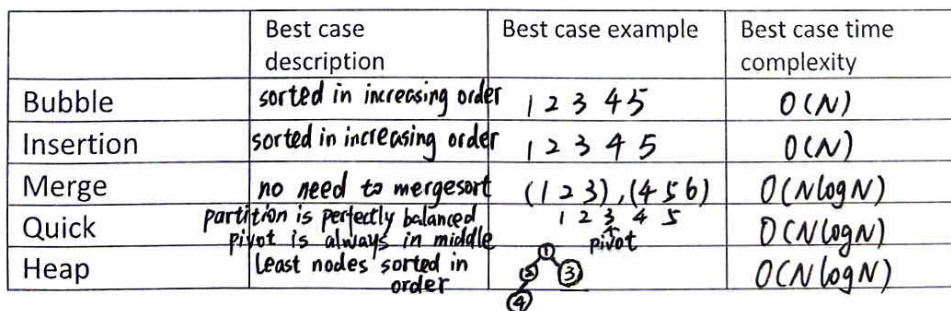 Best case description Best case example Best case time complexity
Bubble sorted in increasing order 1 2 3 4 5 O(N)
Insertion sorted in increasing order 1 2 3 4 5 O(N)
Merge no need to mergesort (1 2 3), (4 5 6) O(NlogN)
Quick partition is perfectly balanced pivot is always in middle 1 2 3 4 5 pivot O(NlogN)
Heap Least nodes sorted in order 1 5 3 4 O(NlogN)